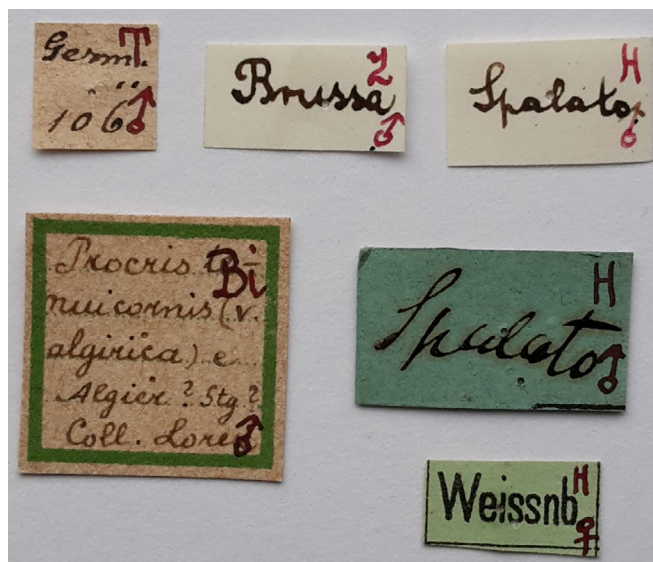 Germ. T
106 ♂
Brussa Z
♂
Spalato H
♂
Procris te- Bi
nuicornis (v.
algirica) e
Algier? Stg?
Coll. Lore ♂
Spalato H
♂
Weissnb. H
♀